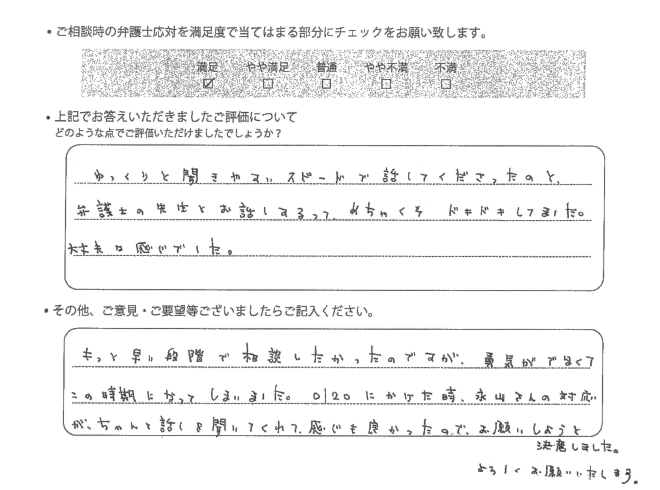 ・ご相談時の弁護士応対を満足度で当てはまる部分にチェックをお願い致します。
満足 やや満足 普通 やや不満 不満
☑ □ □ □ □
・上記でお答えいただきましたご評価について
どのような点でご評価いただけましたでしょうか？
ゆっくりと聞きやすいスピードで話してくださったのと、
弁護士の先生とお話しするって、めちゃくそ ドキドキしてました。
大丈夫な感じでした。
・その他、ご意見・ご要望等ございましたらご記入ください。
もっと早い段階で相談したかったのですが、勇気がでなくて
この時期になってしまいました。0120にかけた時、永山さんの対応
が、ちゃんと話しを聞いてくれて、感じも良かったので、お願いしようと
決意しました。
よろしくお願いいたします。